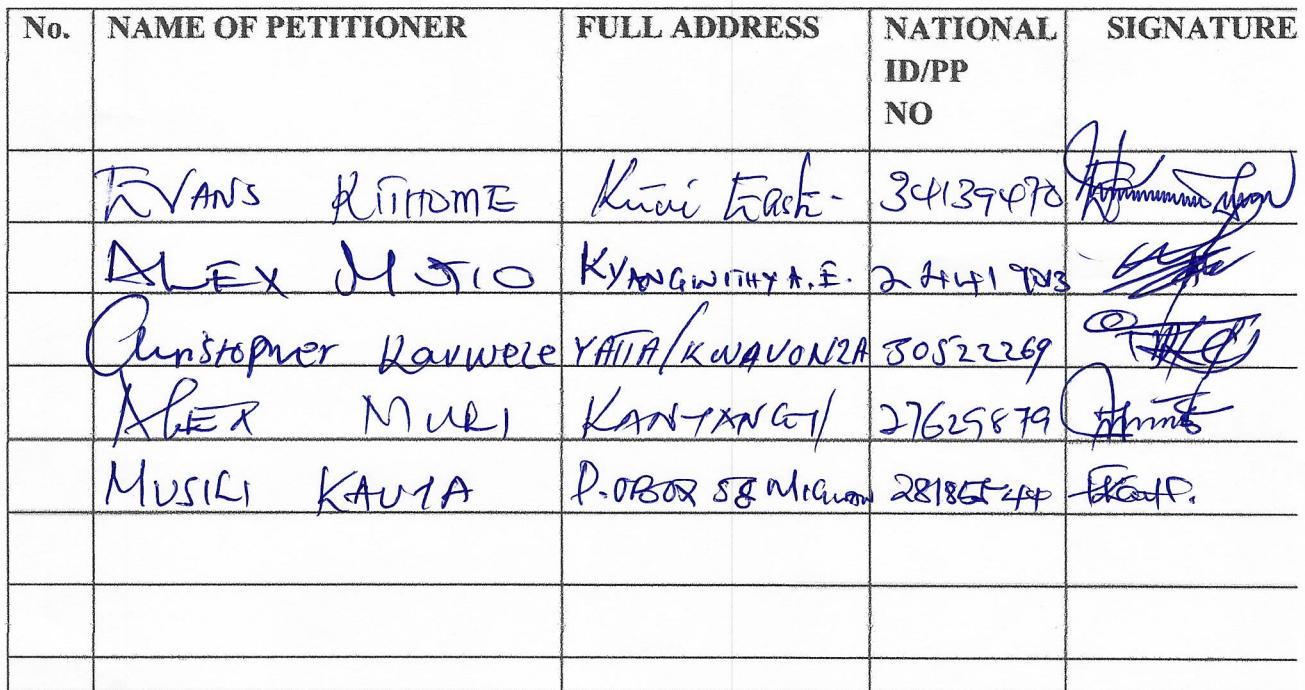 No. NAME OF PETITIONER FULL ADDRESS NATIONAL ID/PP NO SIGNATURE
EVANS KITHOME Kitui East - 34139470
ALEX MUTIO KYANGWITHYA.E.
Christopher Kavweze YATTA/KWAVONZA 30522269
ALEX MURI KANYANGI/ 27629879
MUSILI KAUYA P.OBOX 58 Migwani